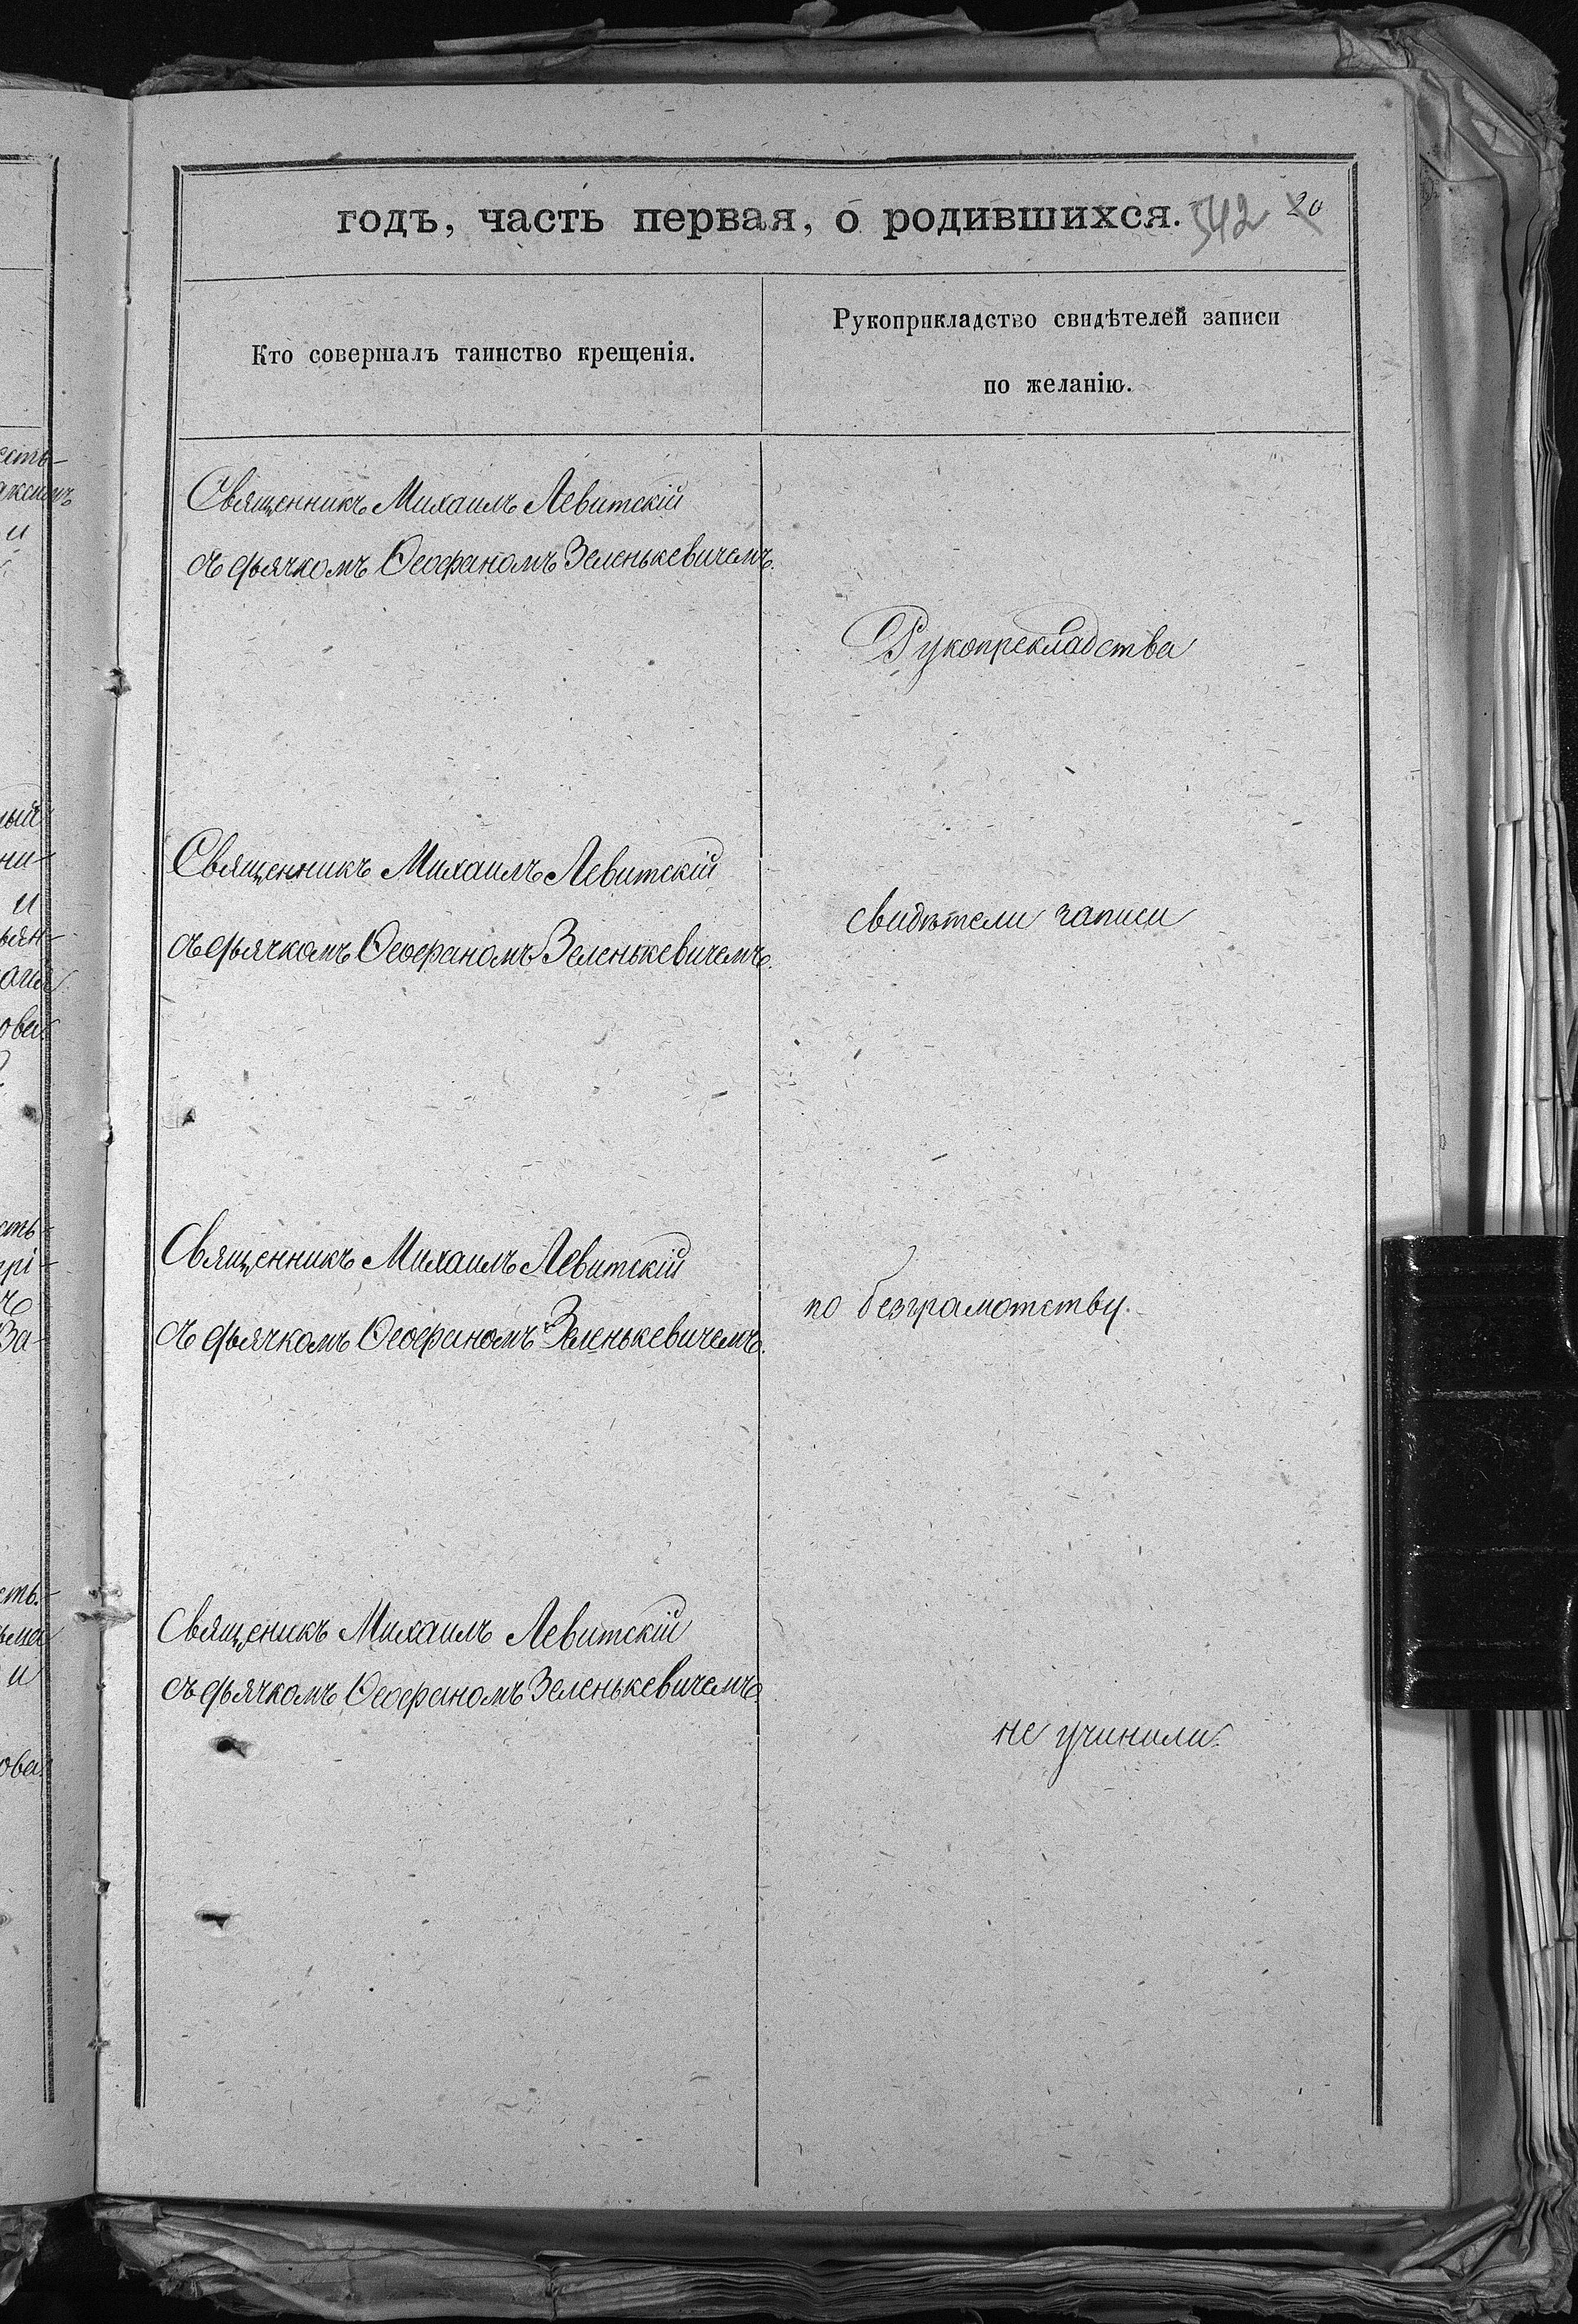 годъ, часть первая, о родившихся. 542 20
Кто совершалъ таинство крещенія.
Рукоприкладство свидѣтелей записи
по желанію.
Священникъ Михаилъ Левитскій
съ дьячкомъ Ѳеофаномъ Зеленькевичемъ.
Рукопрекладства
Священникъ Михаилъ Левитскій
съ дьячкомъ Ѳеофаномъ Зеленькевичемъ.
свидѣтели записи
Священникъ Михаилъ Левитскій
съ дьячкомъ Ѳеофаномъ Зеленькевичемъ.
по безграмотству.
Священикъ Михаилъ Левитскій
съ дьячкомъ Ѳеофаномъ Зеленькевичемъ
не учинили.